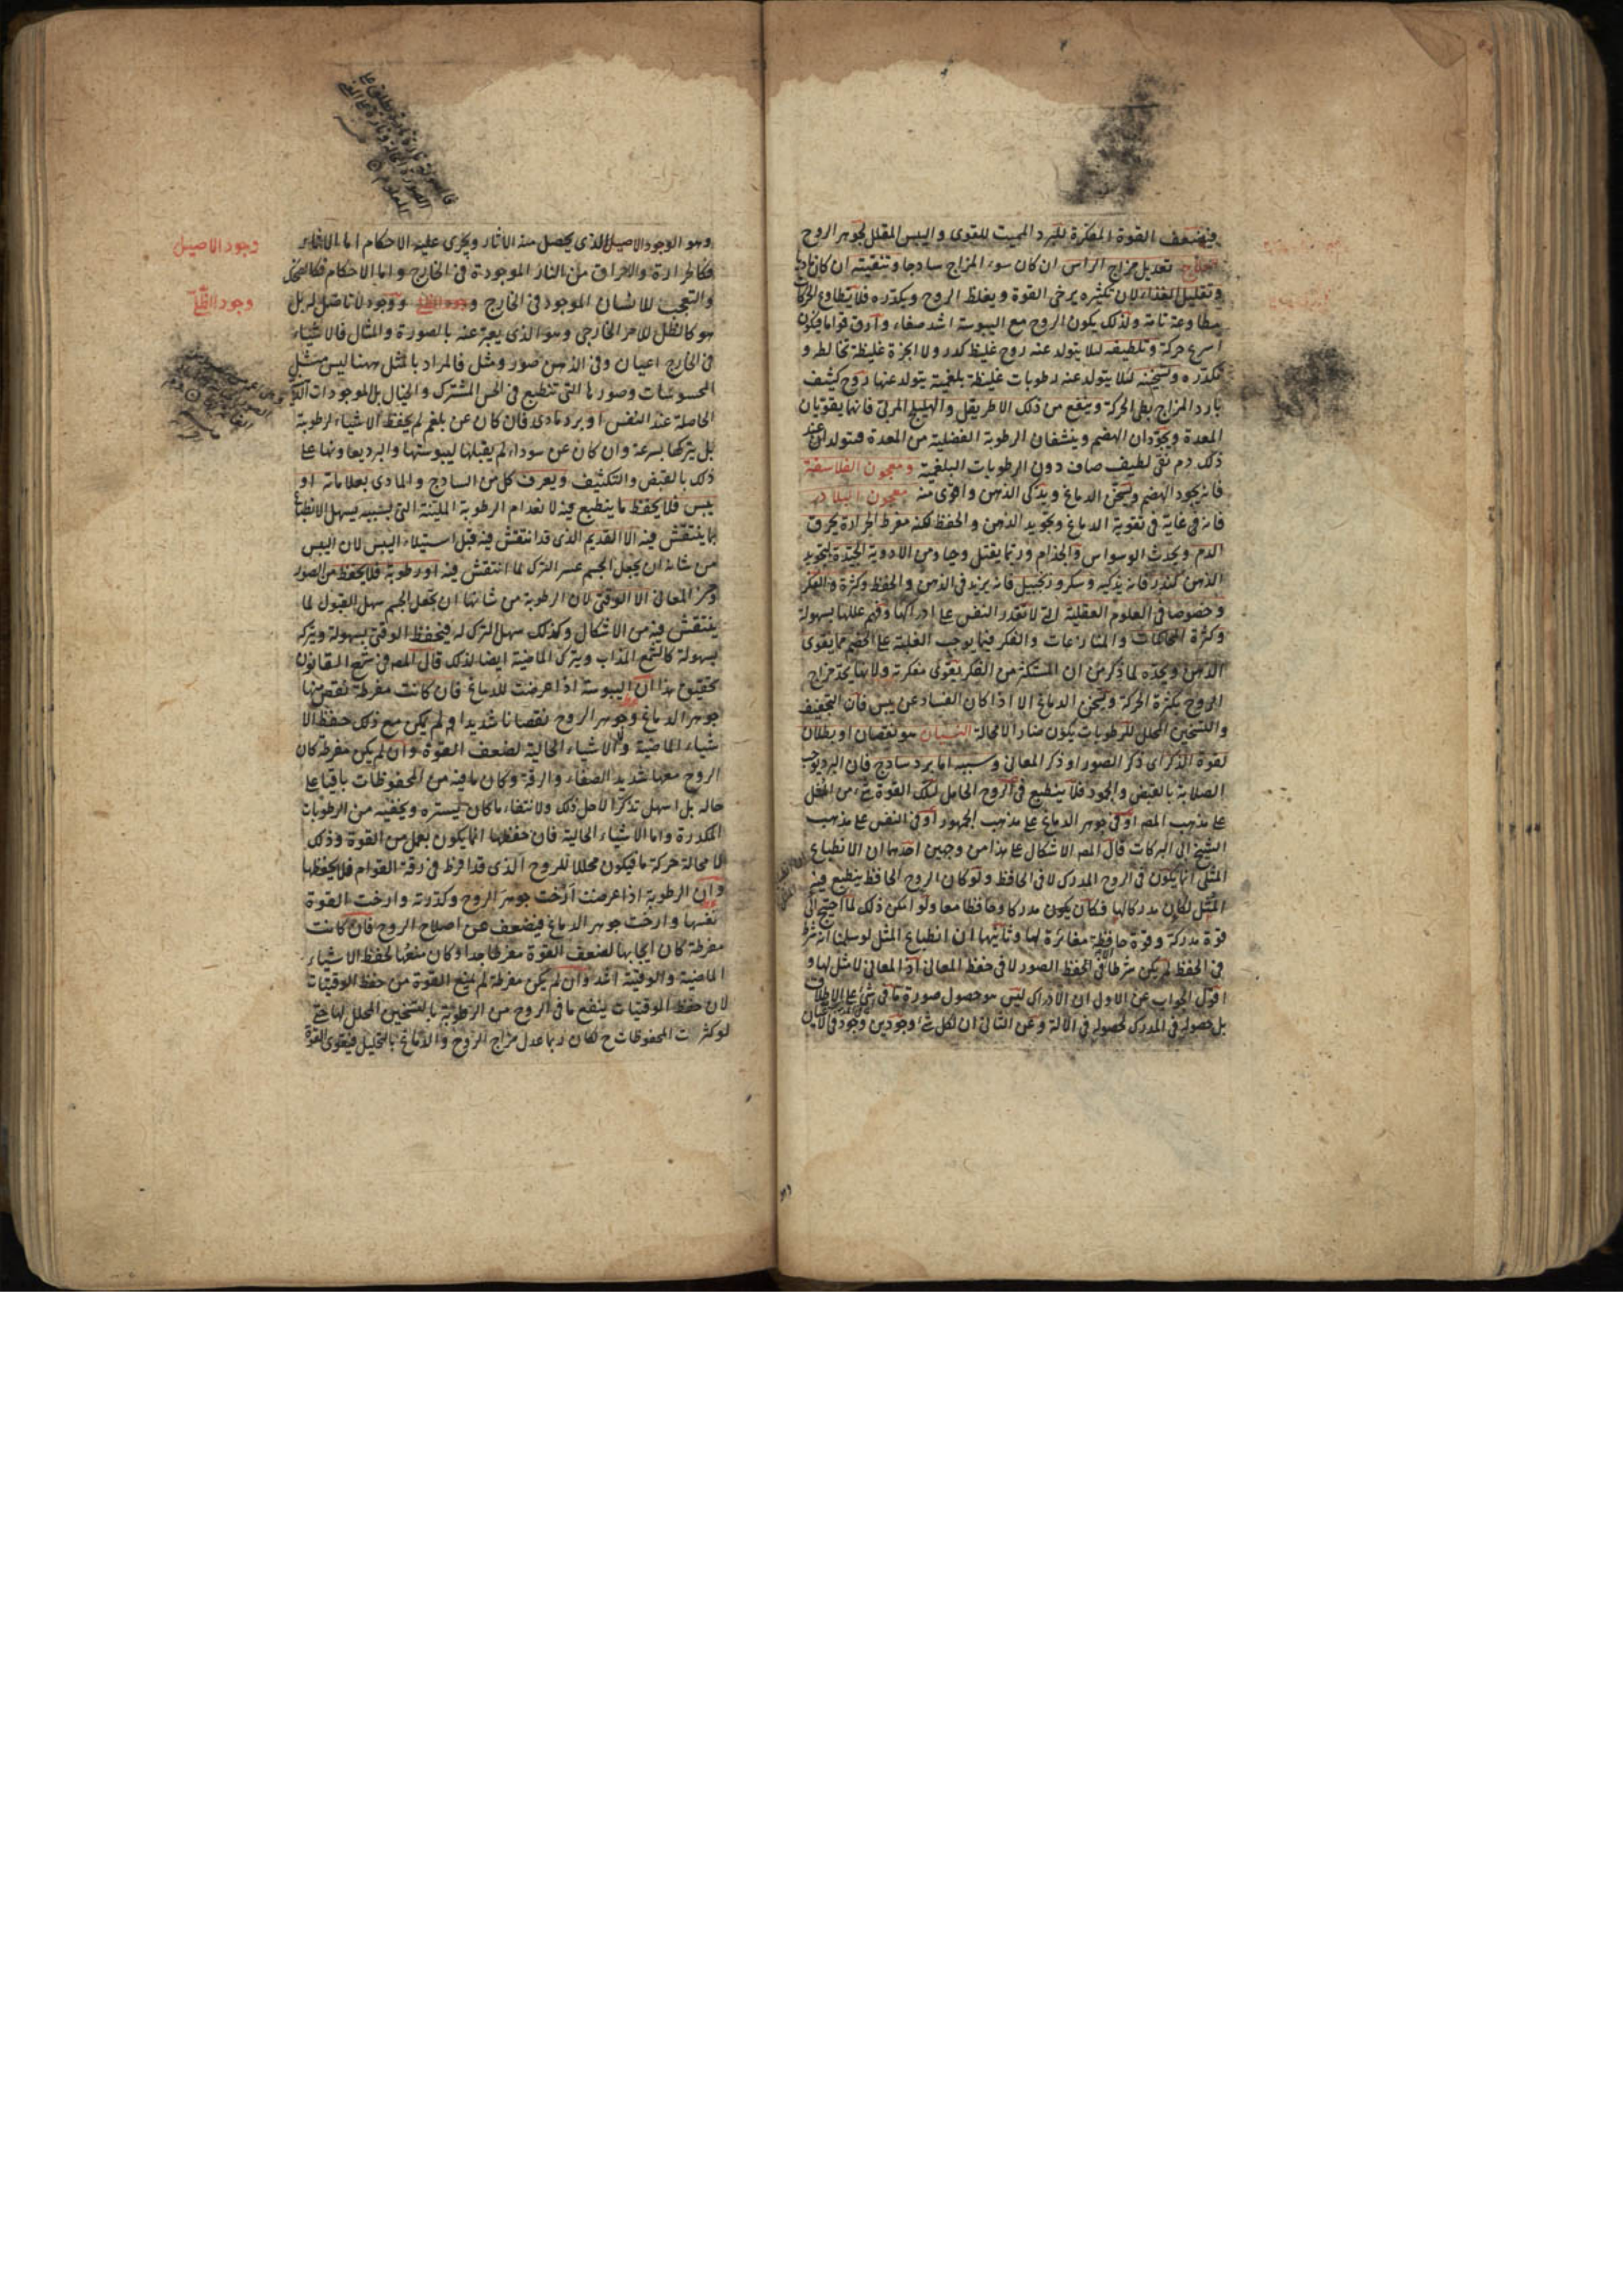 فيضعف القوة المفكرة للبرد المميت للقوى واليبس المقلل لجوهر الروح
العلاج تعديل مزاج الراس ان كان سوء المزاج ساذجا وتنقيته ان كان ماديا
وتقليل الغذاء لان تكثيره يرخى القوة ويغلظ الروح ويكدره فلا يطاوع للحركات
مطاوعة تامة ولذلك يكون الروح مع اليبوسة اشد صفاء وارق قواما فيكون
اسرع حركة وتلطيفه لئلا يتولد عنه روح غليظ كدر ولا ابخرة غليظة تخالطه و
تكدره وتسخينه لئلا يتولد عنه رطوبات غليظة بلغمية يتولد عنها روح كثيف
بارد المزاج بطى الحركة وينفع من ذلك الاطريفل والهليلج المربى فانهما يقويان
المعدة ويجودان الهضم وينشفان الرطوبة الفضلية من المعدة فيتولد عن
ذلك دم نقى لطيف صاف دون الرطوبات البلغمية ومعجون الفلاسفة
فانه يجود الهضم ويسخن الدماغ ويذكى الذهن واقوى منه معجون البلادر
فانه فى غاية فى تقوية الدماغ وتجويد الذهن والحفظ لكنه مفرط الحرارة يحرق
الدم ويحدث الوسواس والجذام وربما يقتل وحيا ومن الادوية الجيدة لتجويد
الذهن كندر فانه يذكيه وسكر وزنجبيل فانه يزيد فى الذهن والحفظ وكثرة الفكر
وخصوصا فى العلوم العقلية التى لا تقدر النفس على ادراكها وفهم عللها بسهولة
وكثرة المحاكمات والمنازعات والفكر فيما يوجب الغلبة على الخصم مما يقوى
الذهن ويحده لما ذكر من ان المستكثر من الفكر يقوى مفكرته ولانها يحد مزاج
الروح بكثرة الحركة ويسخن الدماغ الا اذا كان الفساد عن يبس فان التجفيف
والتسخين المحلل للرطوبات يكون ضارا لا محالة النسيان هو نقصان او بطلان
لقوة الذكر اى ذكر الصور او ذكر المعانى وسببه اما برد ساذج فان البرد يوجب
الصلابة بالقبض والجمود فلا ينطبع فى الروح الحامل لتلك القوة شىء من المثل
على مذهب المص او فى جوهر الدماغ على مذهب الجمهور او فى النفس على مذهب
الشيخ ابى البركات قال المص الاشكال على هذا من وجهين احدهما ان الانطباع
المثلى انما يكون فى الروح المدرك لا فى الحافظ ولو كان الروح الحافظ ينطبع فيه
المثل لكان مدركا لها فكان يكون مدركا وحافظا معا ولو امكن ذلك لما احتيج الى
قوة مدركة وقوة حافظة مغائرة لها وثانيهما ان انطباع المثل لو سلمنا انه شرط
فى الحفظ لم يكن شرطا الا فى الحفظ الصور لا فى حفظ المعانى اذ المعانى لا مثل لها و
اقول الجواب عن الاول ان الادراك ليس هو حصول صورة ما فى شىء على الاطلاق
بل حصوله فى المدرك لحصوله فى الآلة وعن الثانى ان لكل شىء وجودين وجود فى الاعيان
وهو الوجود الاصيل الذى يحصل منه الاثار ويجرى عليه الاحكام اما الاثار
فكالحرارة والاحراق من النار الموجودة فى الخارج واما الاحكام فكالضحك
وجود الاصيل
والتعجب للانسان الموجود فى الخارج ووجود لا تاصل له بل
وجود الظلى
هو كالظل للامر الخارجى وهو الذى يعبر عنه بالصورة والمثال فالاشياء
فى الخارج اعيان وفى الذهن صور ومثل فالمراد بالمثل ههنا ليس مثل
المحسوسات وصورها التى تنطبع فى الحس المشترك والخيال بل الموجودات
الحاصلة عند النفس او برد مادى فان كان عن بلغم لم يحفظ الاشياء لرطوبة
بل يتركها بسرعة وان كان عن سوداء لم يقبلها ليبوستها والبرد يعاونها على
ذلك بالقبض والتكثيف ويعرف كل من الساذج والمادى بعلاماته او
يبس فلا يحفظ ما ينطبع فيه لانعدام الرطوبة الملينة التى بسببه يسهل الانطباع
بما ينتقش فيه الا القديم الذى قد انتقش فيه قبل استيلاء اليبس لان اليبس
من شانه ان يجعل الجسم عسر الترك لما انتقش فيه او رطوبة فلا يحفظ من الصور
ومن المعانى الا الوقتى لان الرطوبة من شانها ان تجعل الجسم سهل القبول لما
ينتقش فيه من الاشكال وكذلك سهل الترك له فيحفظ الوقتى بسهولة ويتركه
بسهولة كالشمع المذاب ويترك الماضية ايضا لذلك قال المص فى شرح القانون
تحقيق هذا ان اليبوسة اذا عرضت للدماغ فان كانت مفرطة نقص منها
جوهر الدماغ وجوهر الروح نقصانا شديدا ولم يكن مع ذلك حفظ الا
شياء الماضية ولا الاشياء الحالية لضعف القوة وان لم يكن مفرطة كان
الروح معها شديد الصفاء والرقة وكان ما فيه من المحفوظات باقيا على
حاله بل اسهل تذكرا لاجل ذلك ولانتفاء ما كان يستره ويخفيه من الرطوبات
المكدرة واما الاشياء الحالية فان حفظها انما يكون بعمل من القوة وذلك
لا محالة حركة ما فيكون محللا للروح الذى قد افرط فى رقة القوام فلا يحفظها
وان الرطوبة اذا عرضت ارخت جوهر الروح وكدرته وارخت القوة
نفسها وارخت جوهر الدماغ فيضعف عن اصلاح الروح فان كانت
مفرطة كان ايجابها لضعف القوة مفرطا جدا وكان منعها لحفظ الاشياء
الماضية والوقتية اشد وان لم يكن مفرطة لم يمنع القوة من حفظ الوقتيات
لان حفظ الوقتيات ينفع ما فى الروح من الرطوبة بالتسخين المحلل لها حتى
لو كثرت المحفوظات ح لكان ربما عدل مزاج الروح والدماغ بالتحليل فيقوى القوة